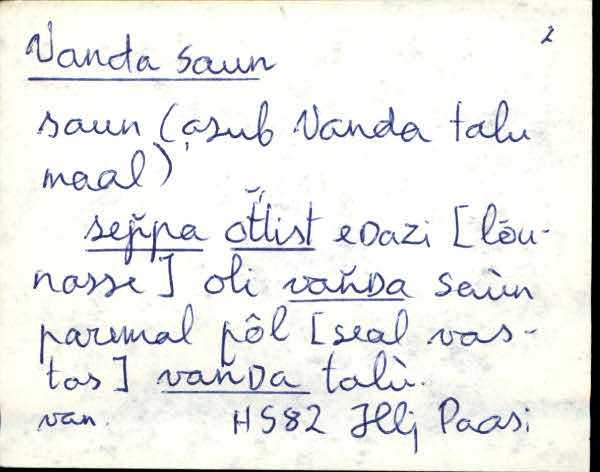 2
Vanda saun
saun (asub Vanda talu
maal)
sep̆pa ot̆list eᴅazi [lõu-
nasse] oli van̆ᴅa saùn
paremal pôl [seal vas-
tas] vanᴅa talù.
van. HS82 Paasi